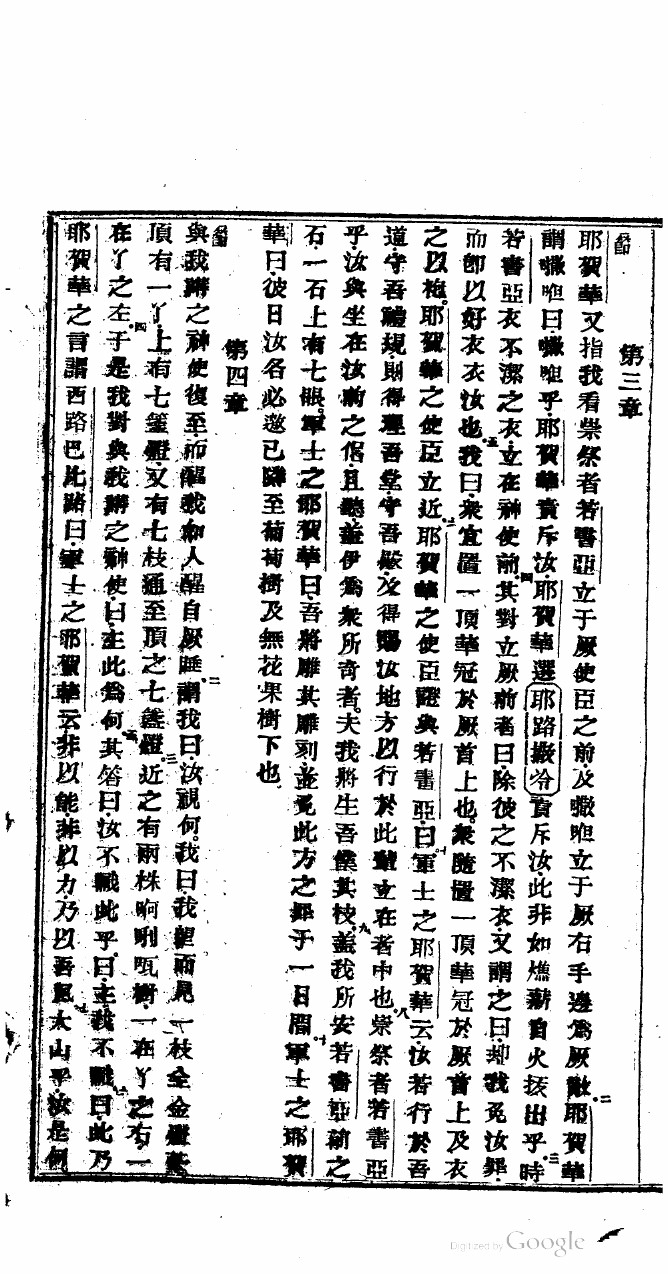 第三章
耶賀華又指我看崇祭者若書亞立于厥使臣之前及嚫呾立于厥右手邊爲厥敵二耶賀華
謂呾曰呾乎耶賀華責斥汝耶賀華選耶路撒冷責斥汝此非如燋薪自火拔出乎三時
若書亞衣不潔之衣立在神使前四其對立厥前者曰除彼之不潔衣又謂之曰却我免汝罪
而卽以好衣衣汝也五我曰衆宜置一頂華冠於厥首上也衆隨置一頂華冠於厥首上及衣
之以袍耶賀華之使臣立近六耶賀華之使臣證與若書亞曰七軍士之耶賀華云汝若行於吾
道守吾禮規則得理吾堂守吾嚴及得賜汝地方以行於此輩立在者中也八崇祭者若書亞
乎汝與坐在汝前之侶且聽蓋伊爲衆所奇者夫我將生吾僕其枝九蓋我所安若書亞前之
石一石上有七眼軍士之耶賀華曰吾將雕其雕刻並免此方之罪于一日間十軍士之耶賀
華曰彼日汝各必邀已隣至葡萄樹及無花果樹下也
第四章
與我講之神使復至而醒我如人醒自厥睡二謂我曰汝視何我曰我望而見一枝全金燈臺
頂有一丫上有七盞燈又有七枝通至頂之七盞燈三近之有兩株啊唎㼘樹一在丫之右一
在丫之左四于是我對與我講之神使曰主此爲何五其答曰汝不識此乎曰主我不識六曰此乃
耶賀華之言謂西路巴比路曰軍士之耶賀華云非以能非以力乃以吾風七大山乎汝是何
Digitized by Google